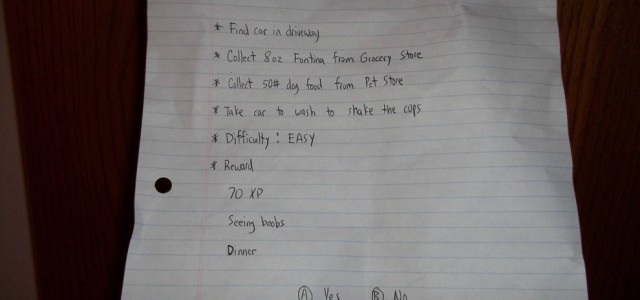 * Find car in driveway
* Collect 8oz Fontina from Grocery Store
* Collect 50# dog food from Pet Store
* Take car to wash to shake the cops
* Difficulty : EASY
* Reward
70 XP
Seeing boobs
Dinner
Ⓐ Yes Ⓑ No